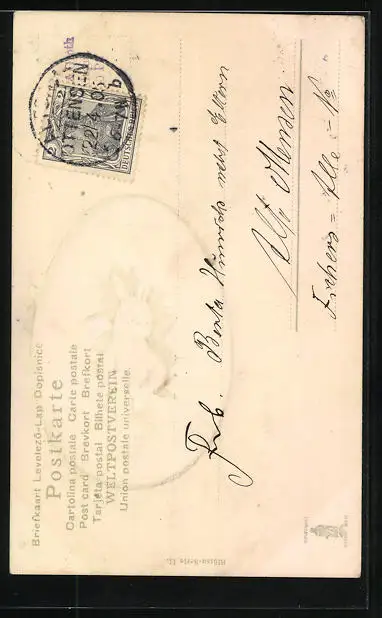 Briefkaart Levelező-Lap Dopisnice
Postkarte
Cartolina postale Carte postale
Post card Brevkort Brefkort
Tarjeta postal Bilhete postal
WELTPOSTVEREIN
Union postale universelle.
OTTENSEN
22/4
DEUTSCHES
Frb. Berta Hinrichs nebst Eltern
Ottensen
Fischers-Allee
-Serie II.